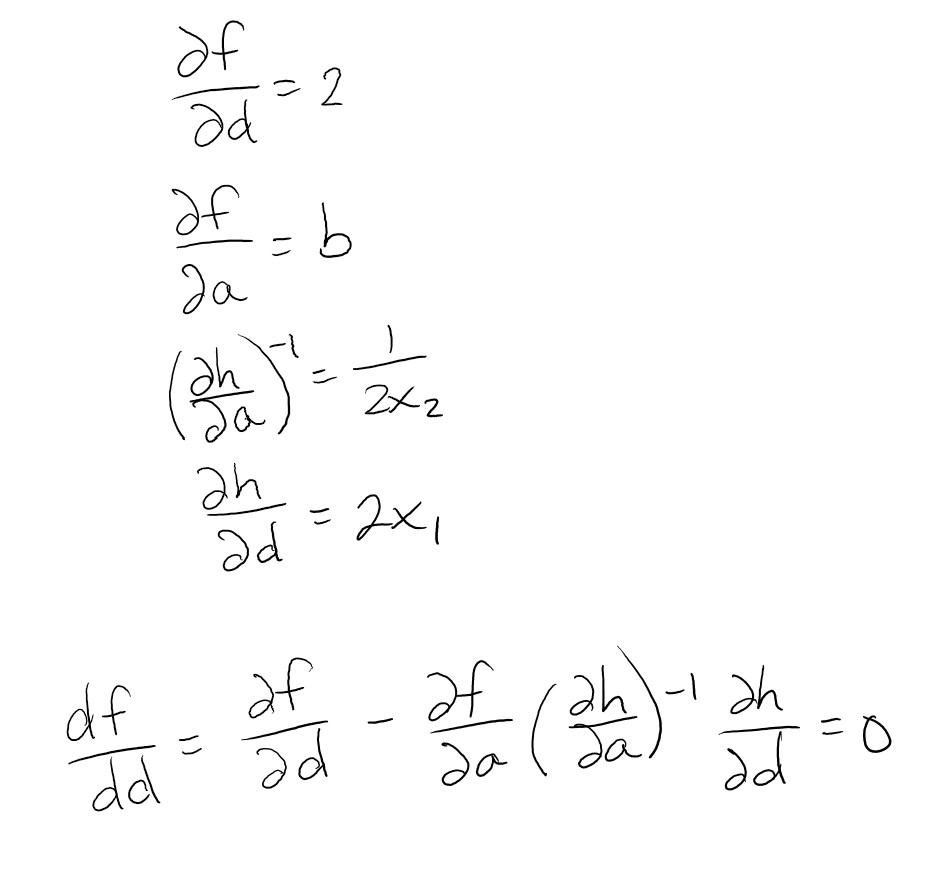 ∂f/∂d = 2
∂f/∂a = b
(∂h/∂a)⁻¹ = 1/2x₂
∂h/∂d = 2x₁
df/dd = ∂f/∂d - ∂f/∂a (∂h/∂a)⁻¹ ∂h/∂d = 0